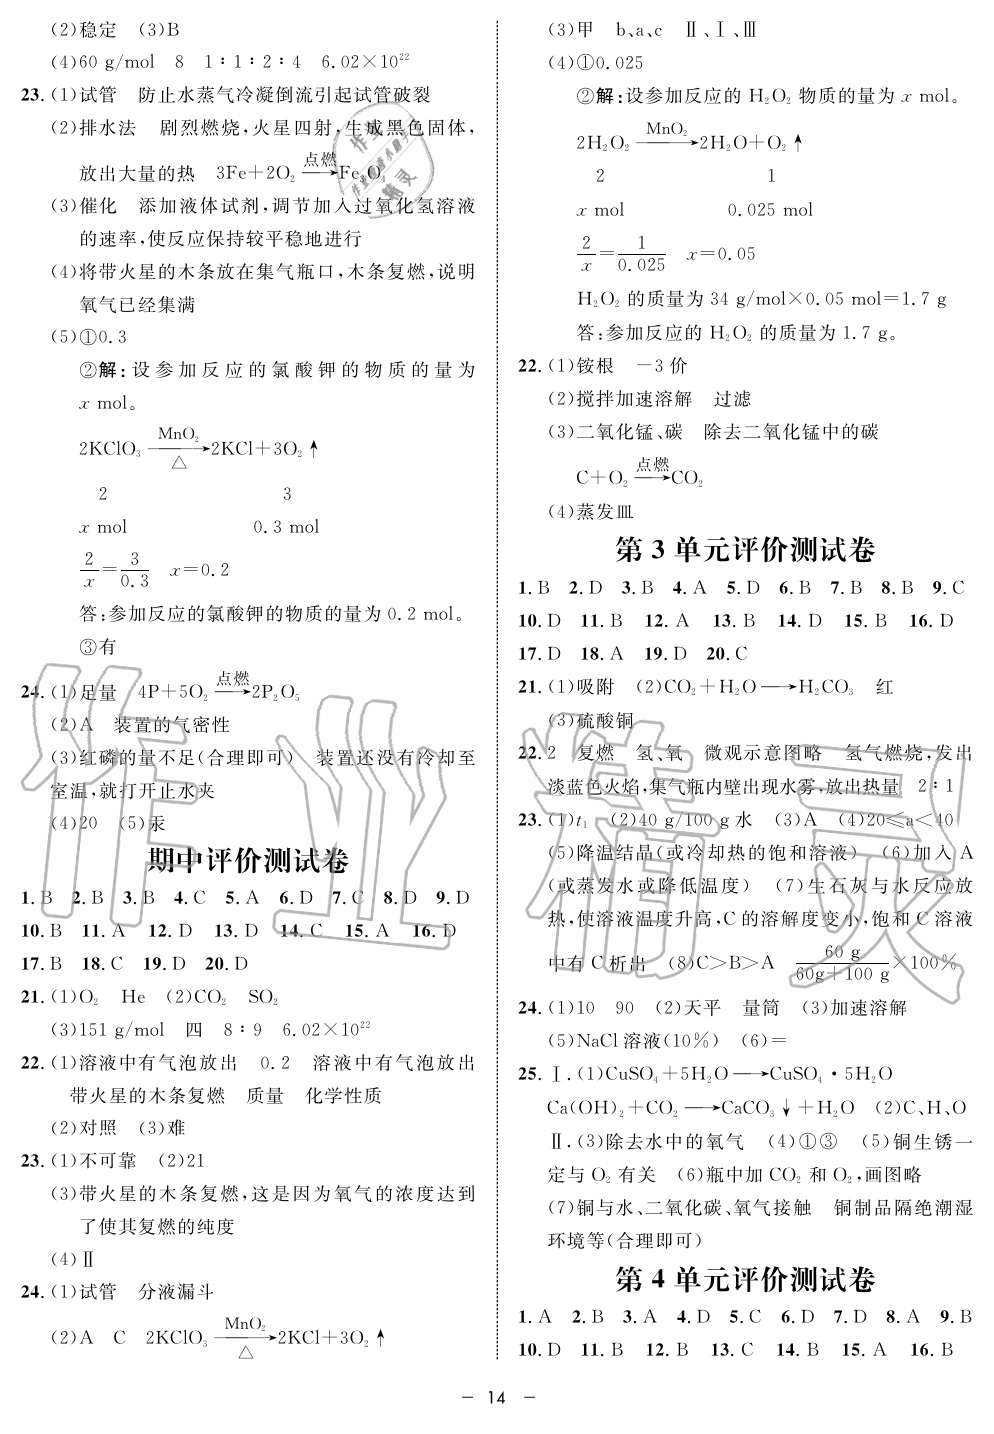 (2)稳定 (3)B
(4)60 g/mol 8 1∶1∶2∶4 6.02×10²²
23.(1)试管 防止水蒸气冷凝倒流引起试管破裂
(2)排水法 剧烈燃烧,火星四射,生成黑色固体,
点燃
放出大量的热 3Fe+2O₂⟶Fe₃O₄
(3)催化 添加液体试剂,调节加入过氧化氢溶液
的速率,使反应保持较平稳地进行
(4)将带火星的木条放在集气瓶口,木条复燃,说明
氧气已经集满
(5)①0.3
②解:设参加反应的氯酸钾的物质的量为
x mol。
MnO₂
2KClO₃⟶2KCl+3O₂↑
△
2 3
x mol 0.3 mol
2/x=3/0.3 x=0.2
答:参加反应的氯酸钾的物质的量为0.2 mol。
③有
点燃
24.(1)足量 4P+5O₂⟶2P₂O₅
(2)A 装置的气密性
(3)红磷的量不足(合理即可) 装置还没有冷却至
室温,就打开止水夹
(4)20 (5)汞
期中评价测试卷
1.B 2.B 3.B 4.C 5.A 6.D 7.C 8.D 9.D
10.B 11.A 12.D 13.D 14.C 15.A 16.D
17.B 18.C 19.D 20.D
21.(1)O₂ He (2)CO₂ SO₂
(3)151 g/mol 四 8∶9 6.02×10²²
22.(1)溶液中有气泡放出 0.2 溶液中有气泡放出
带火星的木条复燃 质量 化学性质
(2)对照 (3)难
23.(1)不可靠 (2)21
(3)带火星的木条复燃,这是因为氧气的浓度达到
了使其复燃的纯度
(4)Ⅱ
24.(1)试管 分液漏斗
MnO₂
(2)A C 2KClO₃⟶2KCl+3O₂↑
△
(3)甲 b、a、c Ⅱ、Ⅰ、Ⅲ
(4)①0.025
②解:设参加反应的 H₂O₂ 物质的量为 x mol。
MnO₂
2H₂O₂⟶2H₂O+O₂↑
2 1
x mol 0.025 mol
2/x=1/0.025 x=0.05
H₂O₂ 的质量为 34 g/mol×0.05 mol=1.7 g
答:参加反应的 H₂O₂ 的质量为 1.7 g。
22.(1)铵根 −3价
(2)搅拌加速溶解 过滤
(3)二氧化锰、碳 除去二氧化锰中的碳
点燃
C+O₂⟶CO₂
(4)蒸发皿
第3单元评价测试卷
1.B 2.D 3.B 4.A 5.D 6.B 7.B 8.B 9.C
10.D 11.B 12.A 13.B 14.D 15.B 16.D
17.D 18.A 19.D 20.C
21.(1)吸附 (2)CO₂+H₂O⟶H₂CO₃ 红
(3)硫酸铜
22.2 复燃 氢、氧 微观示意图略 氢气燃烧,发出
淡蓝色火焰,集气瓶内壁出现水雾,放出热量 2∶1
23.(1)t₁ (2)40 g/100 g水 (3)A (4)20≤a<40
(5)降温结晶(或冷却热的饱和溶液) (6)加入 A
(或蒸发水或降低温度) (7)生石灰与水反应放
热,使溶液温度升高,C的溶解度变小,饱和C溶液
中有C析出 (8)C>B>A 60 g/60g+100 g×100%
24.(1)10 90 (2)天平 量筒 (3)加速溶解
(5)NaCl溶液(10%) (6)=
25.Ⅰ.(1)CuSO₄+5H₂O⟶CuSO₄·5H₂O
Ca(OH)₂+CO₂⟶CaCO₃↓+H₂O (2)C、H、O
Ⅱ.(3)除去水中的氧气 (4)①③ (5)铜生锈一
定与 O₂ 有关 (6)瓶中加 CO₂ 和 O₂,画图略
(7)铜与水、二氧化碳、氧气接触 铜制品隔绝潮湿
环境等(合理即可)
第4单元评价测试卷
1.A 2.B 3.A 4.D 5.C 6.D 7.D 8.A 9.B
10.D 11.B 12.B 13.C 14.B 15.A 16.B
— 14 —
作业精灵